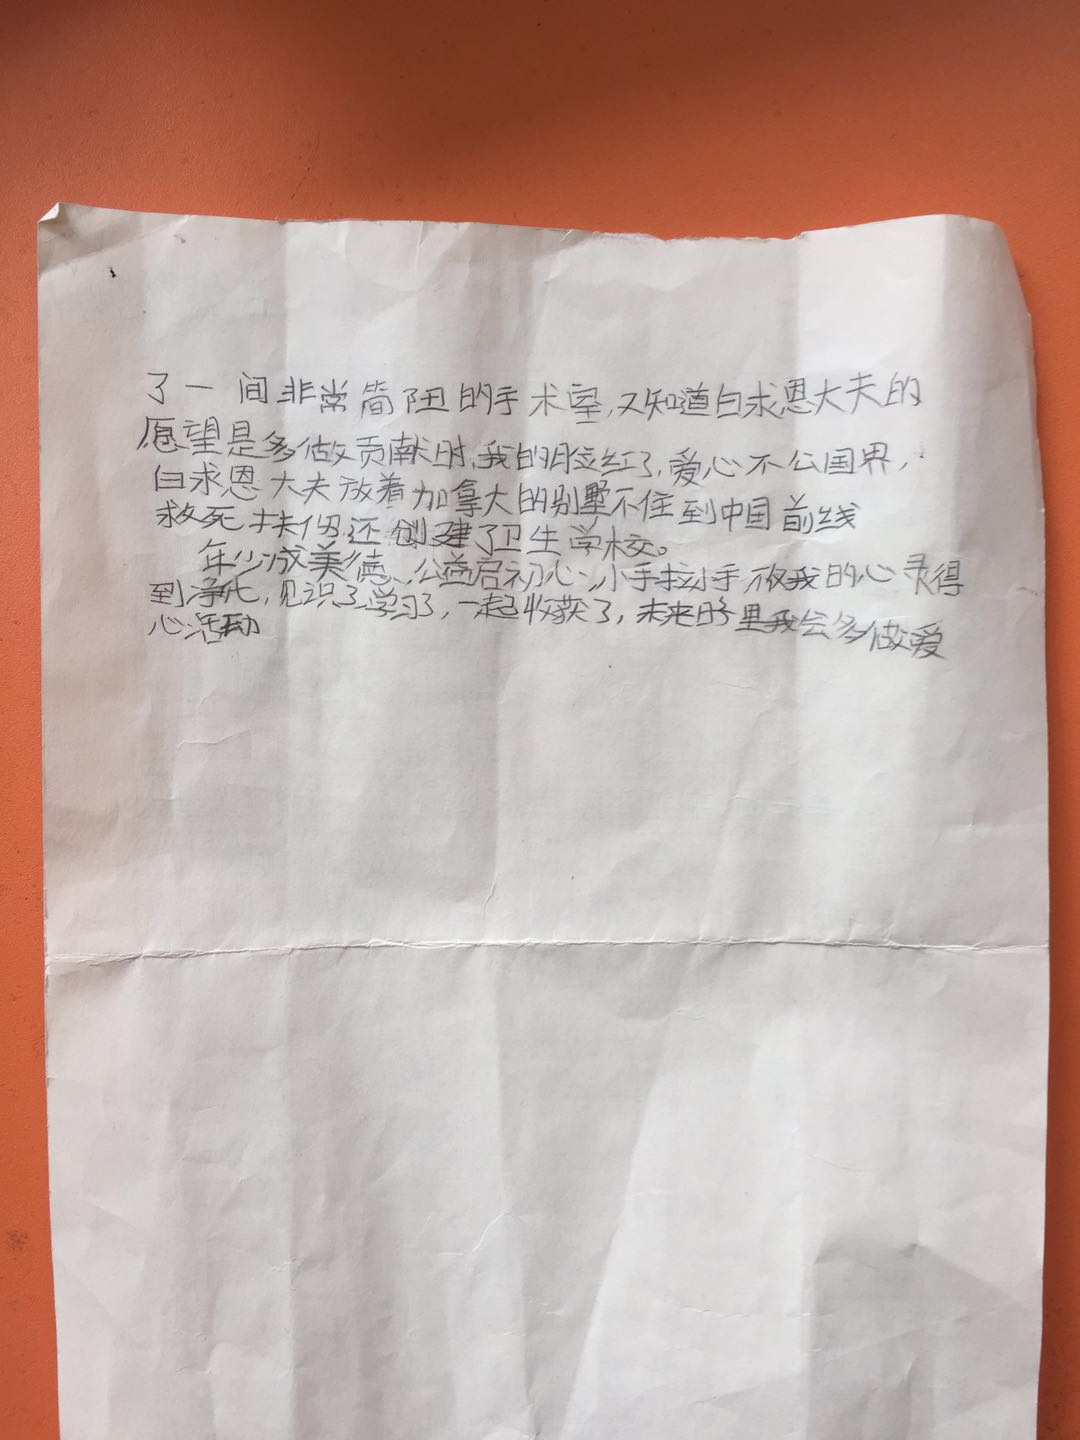 了一间非常简陋的手术室，又知道白求恩大夫的
愿望是多做贡献时，我的脸红了，爱心不公国界，
白求恩大夫放着加拿大的别墅不住到中国前线
救死扶伤还创建了卫生学校。
年少成美德、公益启初心、小手拉小手，我的心灵得
到净化，见识了学习了，一起收获了，未来日子里我会多做爱
心活动